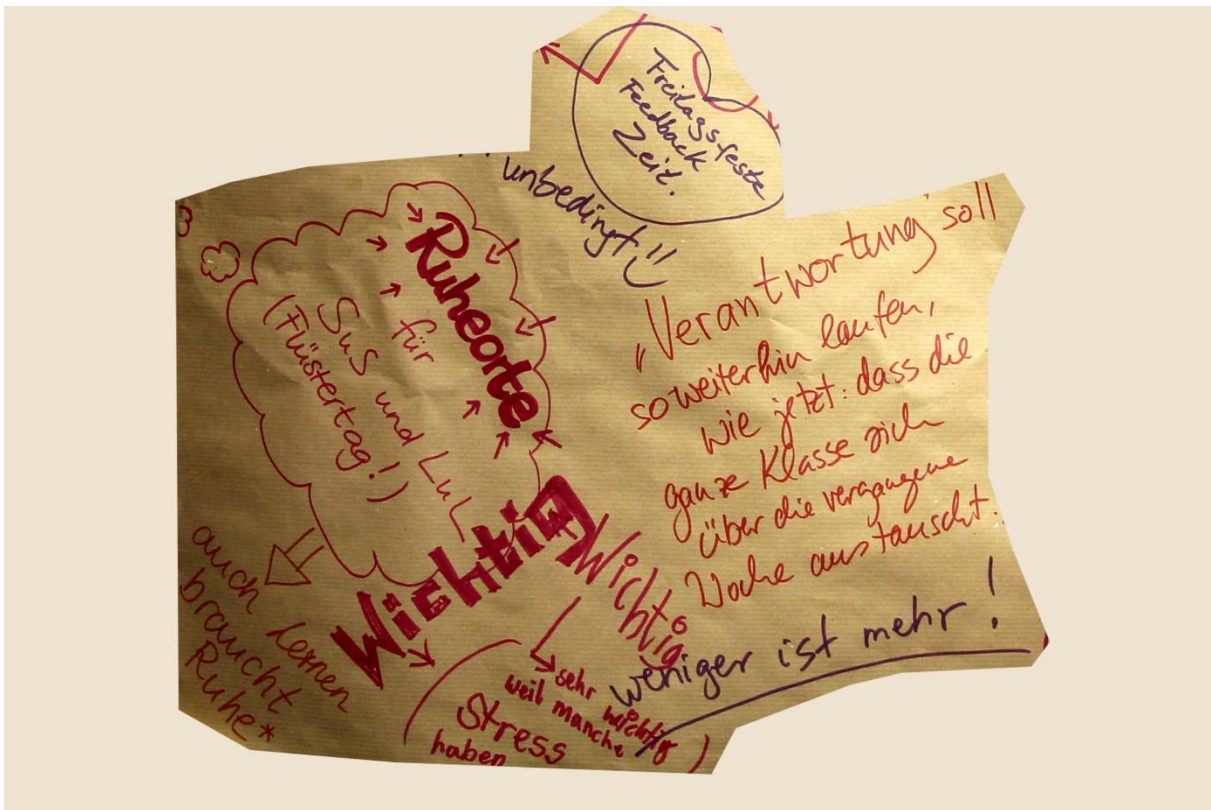 Freitagsfeste
Feedback
Zeit.
unbedingt
Ruheorte
für
SuS und LuL
(Flüstertag!)
Wichtig
auch lernen
braucht
Ruhe*
Wichtig
sehr wichtig
weil manche
Stress
haben
„Verantwortung" soll
so weiterhin laufen,
wie jetzt: dass die
ganze Klasse sich
über die vergangene
Woche austauscht.
weniger ist mehr!